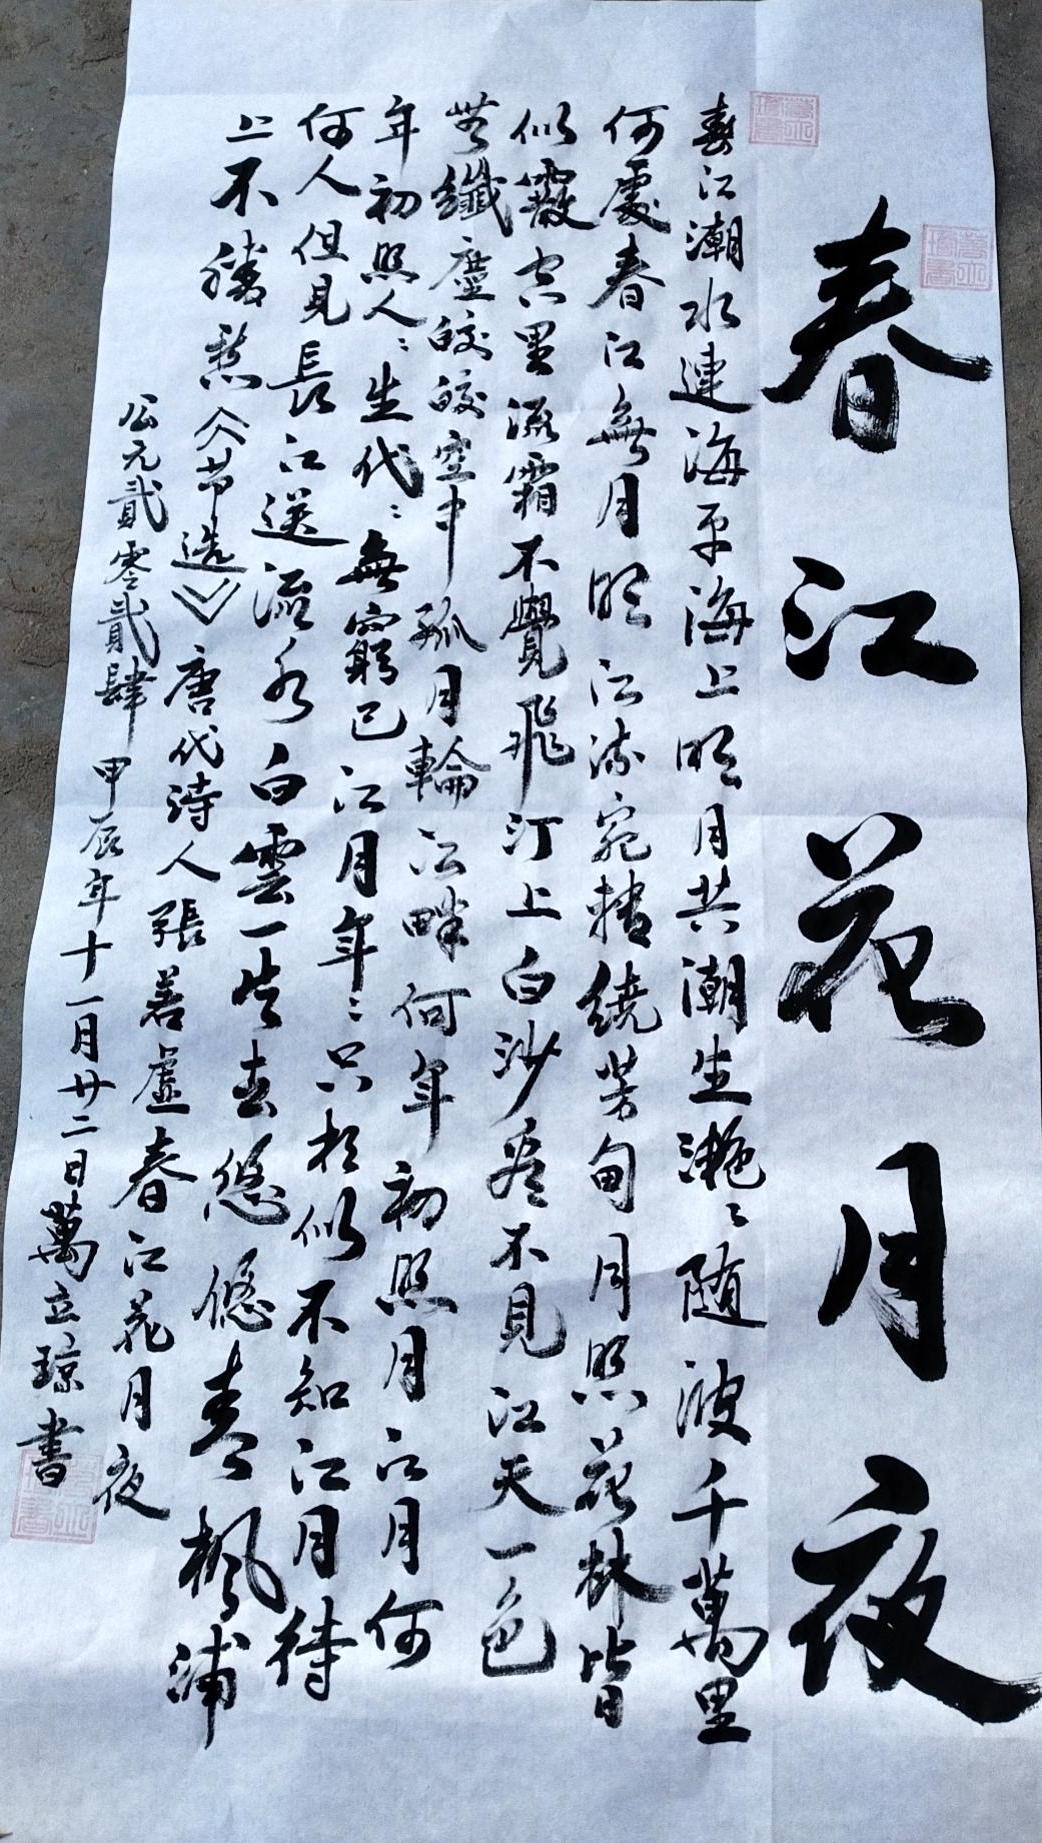 春江花月夜
春江潮水連海平海上明月共潮生灧〻随波千萬里
何處春江無月明江流宛轉繞芳甸月照花林皆
似霰空里流霜不覺飛汀上白沙看不見江天一色
無纖塵皎皎空中孤月輪江畔何年初照月江月何
年初照人〻生代〻無窮已江月年〻只相似不知江月待
何人但見長江送流水白雲一片去悠悠青楓浦
上不勝愁《节选》唐代诗人張若虚春江花月夜
公元貳零貳肆甲辰年十一月廿二日萬立琼書